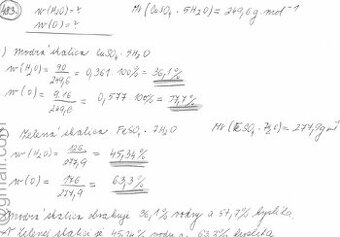 483. w(H₂O) = ? Mr(CuSO₄ · 5H₂O) = 249,6 g · mol⁻¹
w(O) = ?
) Modrá skalica CuSO₄ · 5H₂O
w(H₂O) = 90/249,6 = 0,361 · 100% = 36,1%
w(O) = 9·16/249,6 = 0,577 · 100% = 57,7%
Zelená skalica FeSO₄ · 7H₂O Mr(FeSO₄ · 7H₂O) = 277,9
w(H₂O) = 126/277,9 = 45,34%
w(O) = 176/277,9 = 63,3%
modrá skalica obsahuje 36,1% vody a 57,7% kyslíka
zelenej skalici je 45,34% vody a 63,3% kyslíka
@gmail.com